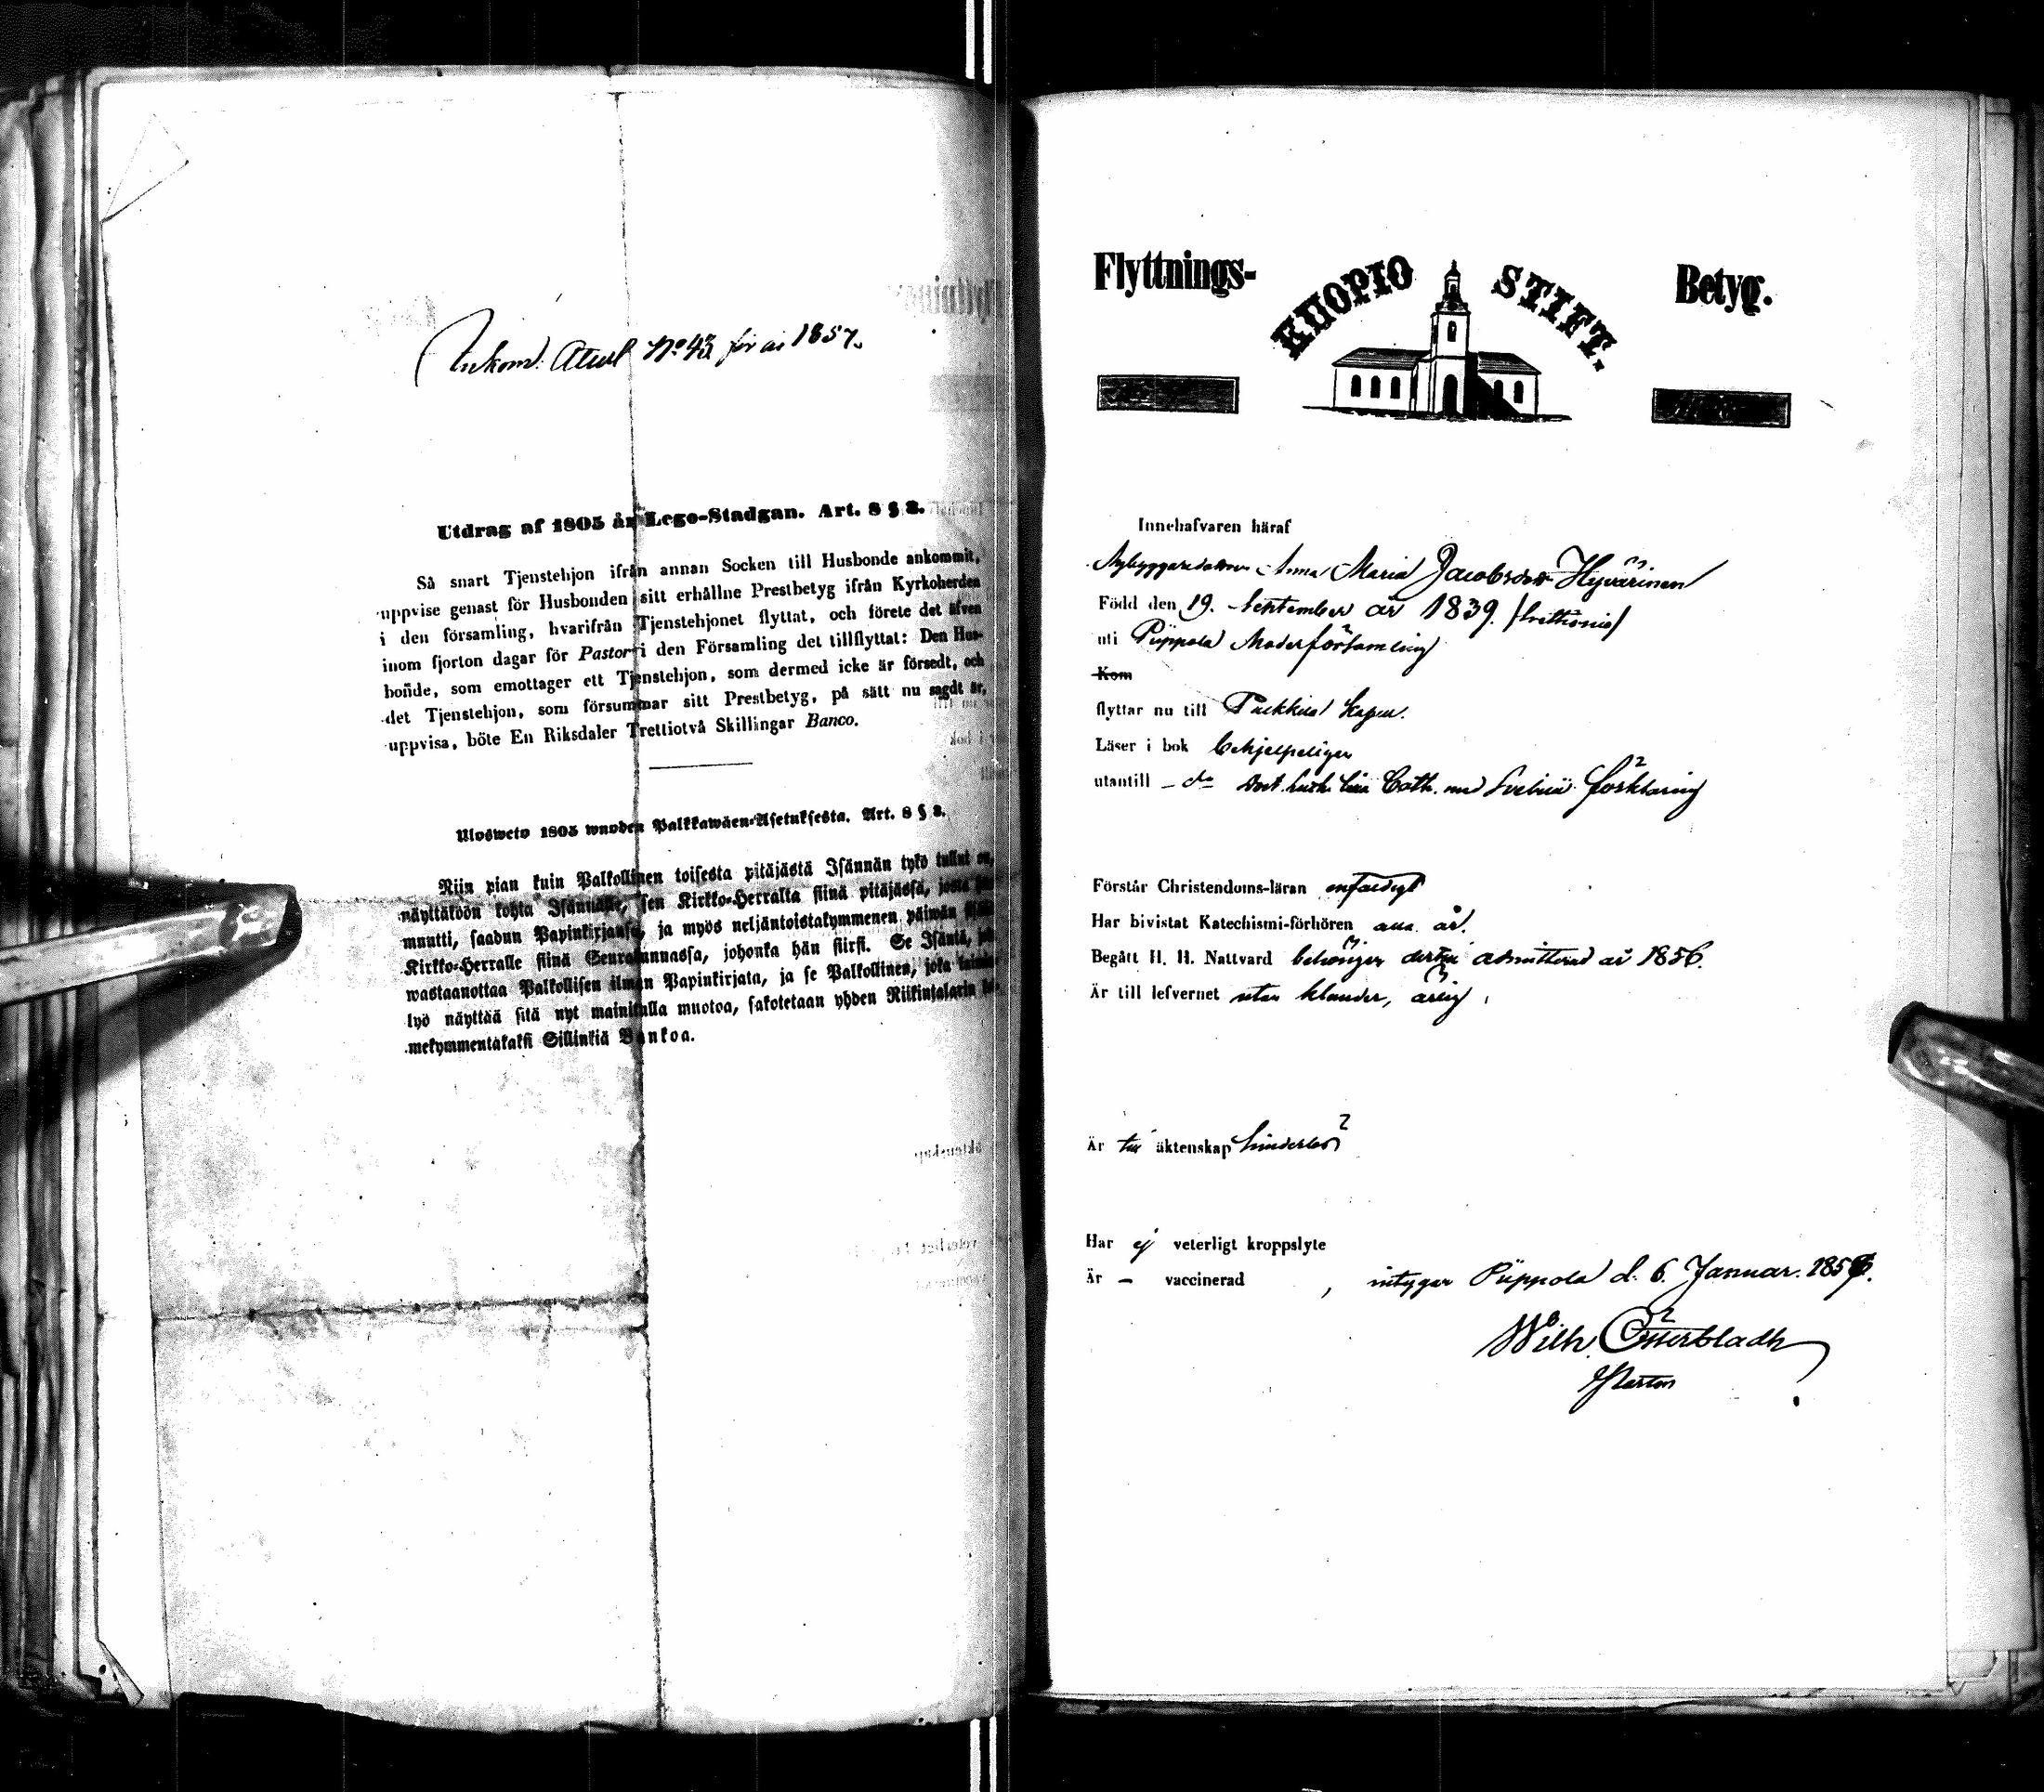 Inkom. Attest No 43 för år 1857.
Utdrag af 1805 års Lego-Stadgan. Art. 8 § 2.
Så snart Tjenstehjon ifrån annan Socken till Husbonde ankommit,
uppvise genast för Husbonden sitt erhållne Prestbetyg ifrån Kyrkoherden
i den församling, hvarifrån Tjenstehjonet flyttat, och förete det äfven
inom fjorton dagar för Pastor i den Församling det tillflyttat: Den Hus-
bonde, som emottager ett Tjenstehjon, som dermed icke är försedt, och
det Tjenstehjon, som försummar sitt Prestbetyg, på sätt nu sagdt är,
uppvisa, böte En Riksdaler Trettiotvå Skillingar Banco.
Ulosweto 1805 wuoden Palkkawäen-Asetuksesta. Art. 8 § 2.
Niin pian kuin Palkollinen toisesta pitäjästä Isännän tykö tullut on,
näyttäköön kohta Isännälle, sen Kirkko-Herralta siinä pitäjässä, josta
muutti, saadun Papinkirjansa, ja myös neljäntoistakymmenen päiwän
Kirkko-Herralle siinä Seurakunnassa, johonka hän siirsi. Se Isäntä, joka
wastaanottaa Palkollisen ilman Papinkirjata, ja se Palkollinen, joka
lyö näyttää sitä nyt mainitulla muotoa, sakotetaan yhden Riikintalarin
mekymmentäkaksi Sillinkiä Bankoa.
Flyttnings- KUOPIO STIFT. Betyg.
Innehafvaren häraf
Nybyggaredottren Anna Maria Jacobsdotr Hyvärinen
Född den 19. September år 1839. /trettionio/
uti Pippola Moderförsamling
Kom
flyttar nu till Pulkkila Kapell.
Läser i bok behjelpeligen
utantill - do Luth. Cath. med Svebilii förklaring
Förstår Christendoms-läran enfaldigt
Har bivistat Katechismi-förhören alla år.
Begått H. H. Nattvard behörigen dertill admitterad år 1856.
Är till lefvernet utan klander, ärlig,
Är till äktenskap hinderlös
Har ej veterligt kroppslyte
Är – vaccinerad , intygar Pippola d. 6. Januar. 185
Wilh. Österbladh
Pastor